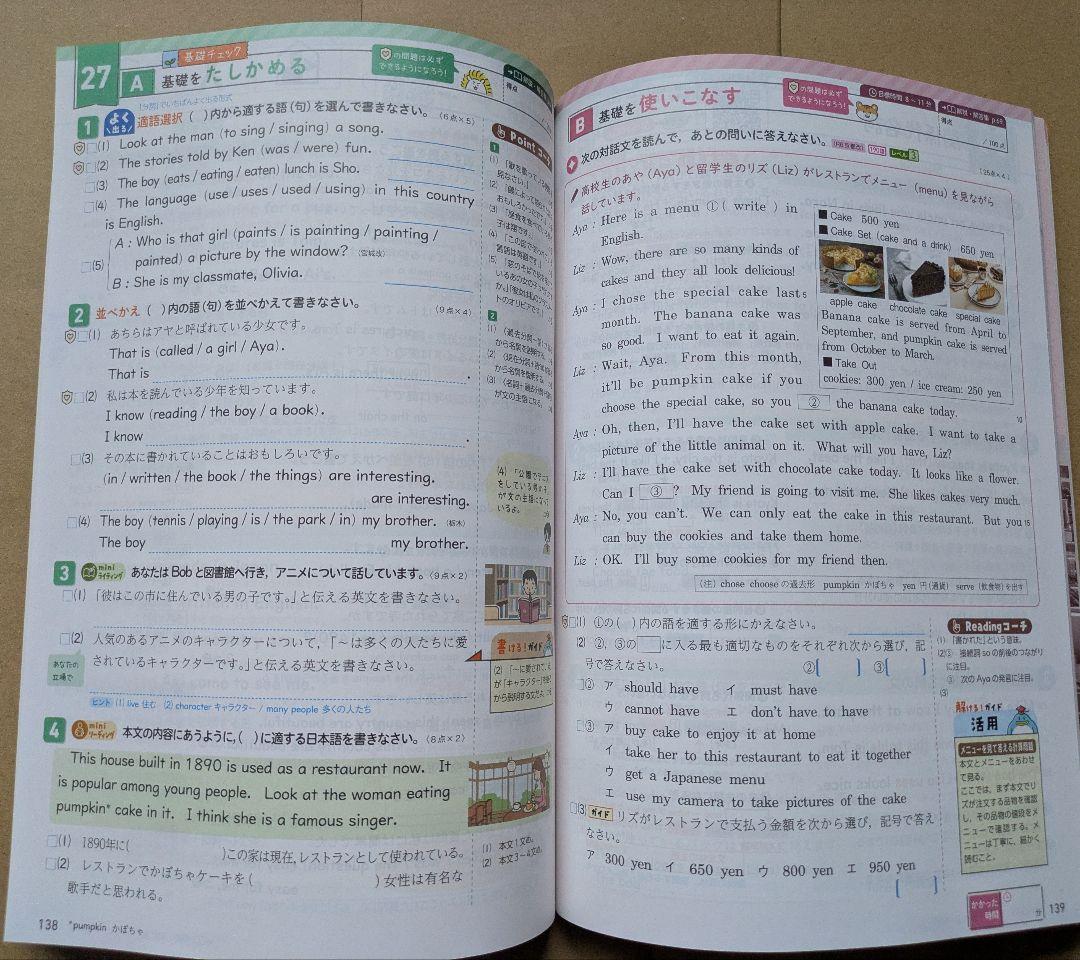 27
A
基礎チェック
基礎をたしかめる
の問題は必ず
できるようになろう!
得点
1
よく出る
適語選択 ( )内から適する語(句)を選んで書きなさい。 〈6点×5〉
(1) Look at the man (to sing / singing) a song.
(2) The stories told by Ken (was / were) fun.
(3) The boy (eats / eating / eaten) lunch is Sho.
(4) The language (use / uses / used / using) in this country
is English.
(5)
A : Who is that girl (paints / is painting / painting /
painted) a picture by the window? 〈宮城改〉
B : She is my classmate, Olivia.
2 並べかえ ( )内の語(句)を並べかえて書きなさい。 〈9点×4〉
(1) あちらはアヤと呼ばれている少女です。
That is (called / a girl / Aya).
That is .
(2) 私は本を読んでいる少年を知っています。
I know (reading / the boy / a book).
I know .
(3) その本に書かれていることはおもしろいです。
(in / written / the book / the things) are interesting.
are interesting.
(4) The boy (tennis / playing / is / the park / in) my brother. 〈栃木〉
The boy my brother.
3 mini ライティング あなたは Bob と図書館へ行き,アニメについて話しています。〈9点×2〉
(1) 「彼はこの市に住んでいる男の子です。」と伝える英文を書きなさい。
(2) 人気のあるアニメのキャラクターについて,「〜は多くの人たちに愛
されているキャラクターです。」と伝える英文を書きなさい。
あなたの
立場で
ヒント (1) live 住む (2) character キャラクター / many people 多くの人たち
4 mini リーディング 本文の内容にあうように,( )に適する日本語を書きなさい。〈8点×2〉
This house built in 1890 is used as a restaurant now. It
is popular among young people. Look at the woman eating
pumpkin* cake in it. I think she is a famous singer.
(1) 1890年に( )この家は現在,レストランとして使われている。
(2) レストランでかぼちゃケーキを( )女性は有名な
歌手だと思われる。
138 *pumpkin かぼちゃ
Point コー
書ける!ガイド
(1) 本文1文め。
(2) 本文3〜4文め。
B 基礎を使いこなす
の問題は必ず
できるようになろう!
目標時間 8〜11分
解説・解答集 p.69
得点
/100点
次の対話文を読んで,あとの問いに答えなさい。
レベル 3
〔25点×4〕
高校生のあや (Aya) と留学生のリズ (Liz) がレストランでメニュー (menu) を見ながら
話しています。
Aya : Here is a menu ①( write ) in
English.
Liz : Wow, there are so many kinds of
cakes and they all look delicious!
Aya : I chose the special cake last 5
month. The banana cake was
so good. I want to eat it again.
Liz : Wait, Aya. From this month,
it'll be pumpkin cake if you
choose the special cake, so you ② the banana cake today. 10
Aya : Oh, then, I'll have the cake set with apple cake. I want to take a
picture of the little animal on it. What will you have, Liz?
Liz : I'll have the cake set with chocolate cake today. It looks like a flower.
Can I ③ ? My friend is going to visit me. She likes cakes very much.
Aya : No, you can't. We can only eat the cake in this restaurant. But you 15
can buy the cookies and take them home.
Liz : OK. I'll buy some cookies for my friend then.
■ Cake 500 yen
■ Cake Set (cake and a drink) 650 yen
apple cake chocolate cake special cake
Banana cake is served from April to
September, and pumpkin cake is served
from October to March.
■ Take Out
cookies: 300 yen / ice cream: 250 yen
(注) chose choose の過去形 pumpkin かぼちゃ yen 円(通貨) serve (飲食物)を出す
(1) ①の( )内の語を適する形にかえなさい。
(2) ②,③の に入る最も適切なものをそれぞれ次から選び,記
号で答えなさい。 ②[ ] ③[ ]
② ア should have イ must have
ウ cannot have エ don't have to have
③ ア buy cake to enjoy it at home
イ take her to this restaurant to eat it together
ウ get a Japanese menu
エ use my camera to take pictures of the cake
(3) ガイド リズがレストランで支払う金額を次から選び,記号で答え
なさい。
ア 300 yen イ 650 yen ウ 800 yen エ 950 yen
[ ]
Readingコーチ
(1) 「書かれた」という意味。
(2)② 接続詞 so の前後のつながり
に注目。
③ 次の Aya の発言に注目。
(3)
解ける!ガイド
活用
メニューを見て答える計算問題
本文とメニューをあわせ
て見る。
ここでは,まず本文でリ
ズが注文する品物を確認
し,その品物の値段をメ
ニューで確認する。メ
ニューは丁寧に,細かく
読むこと。
かかった
時間
分
139